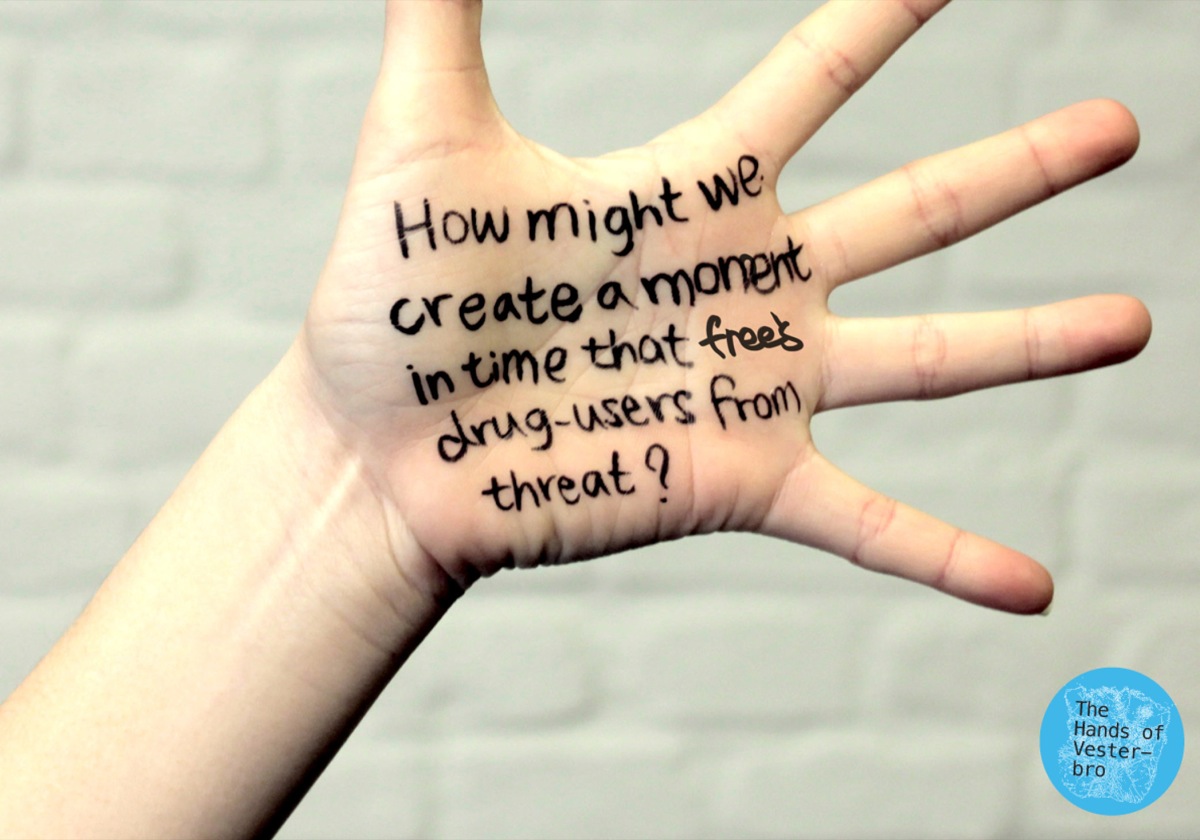 How might we
create a moment
in time that free's
drug-users from
threat?
The
Hands of
Vester-
bro